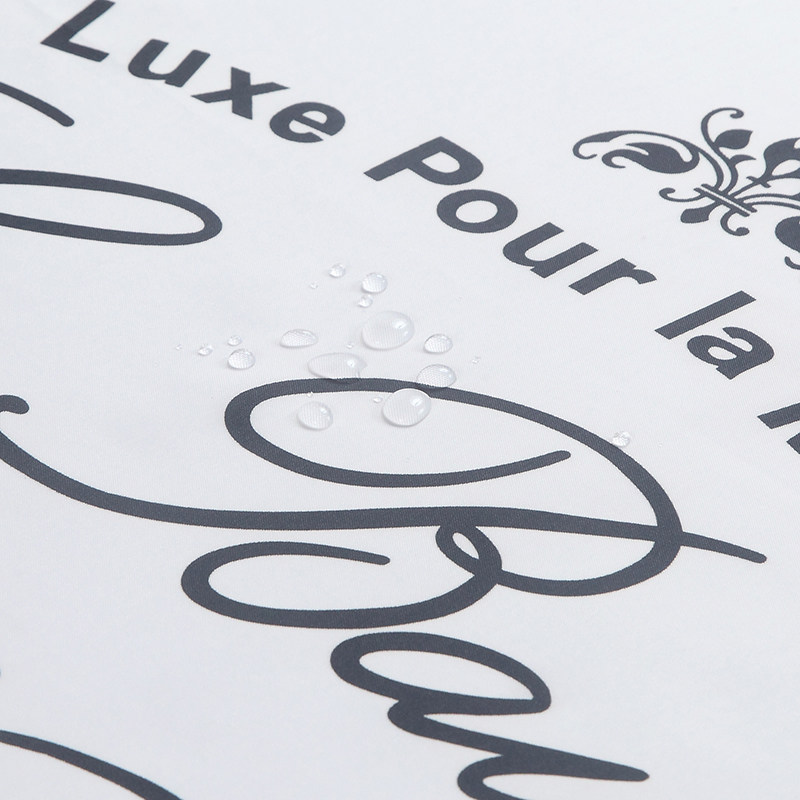 Luxe Pour la
Ba